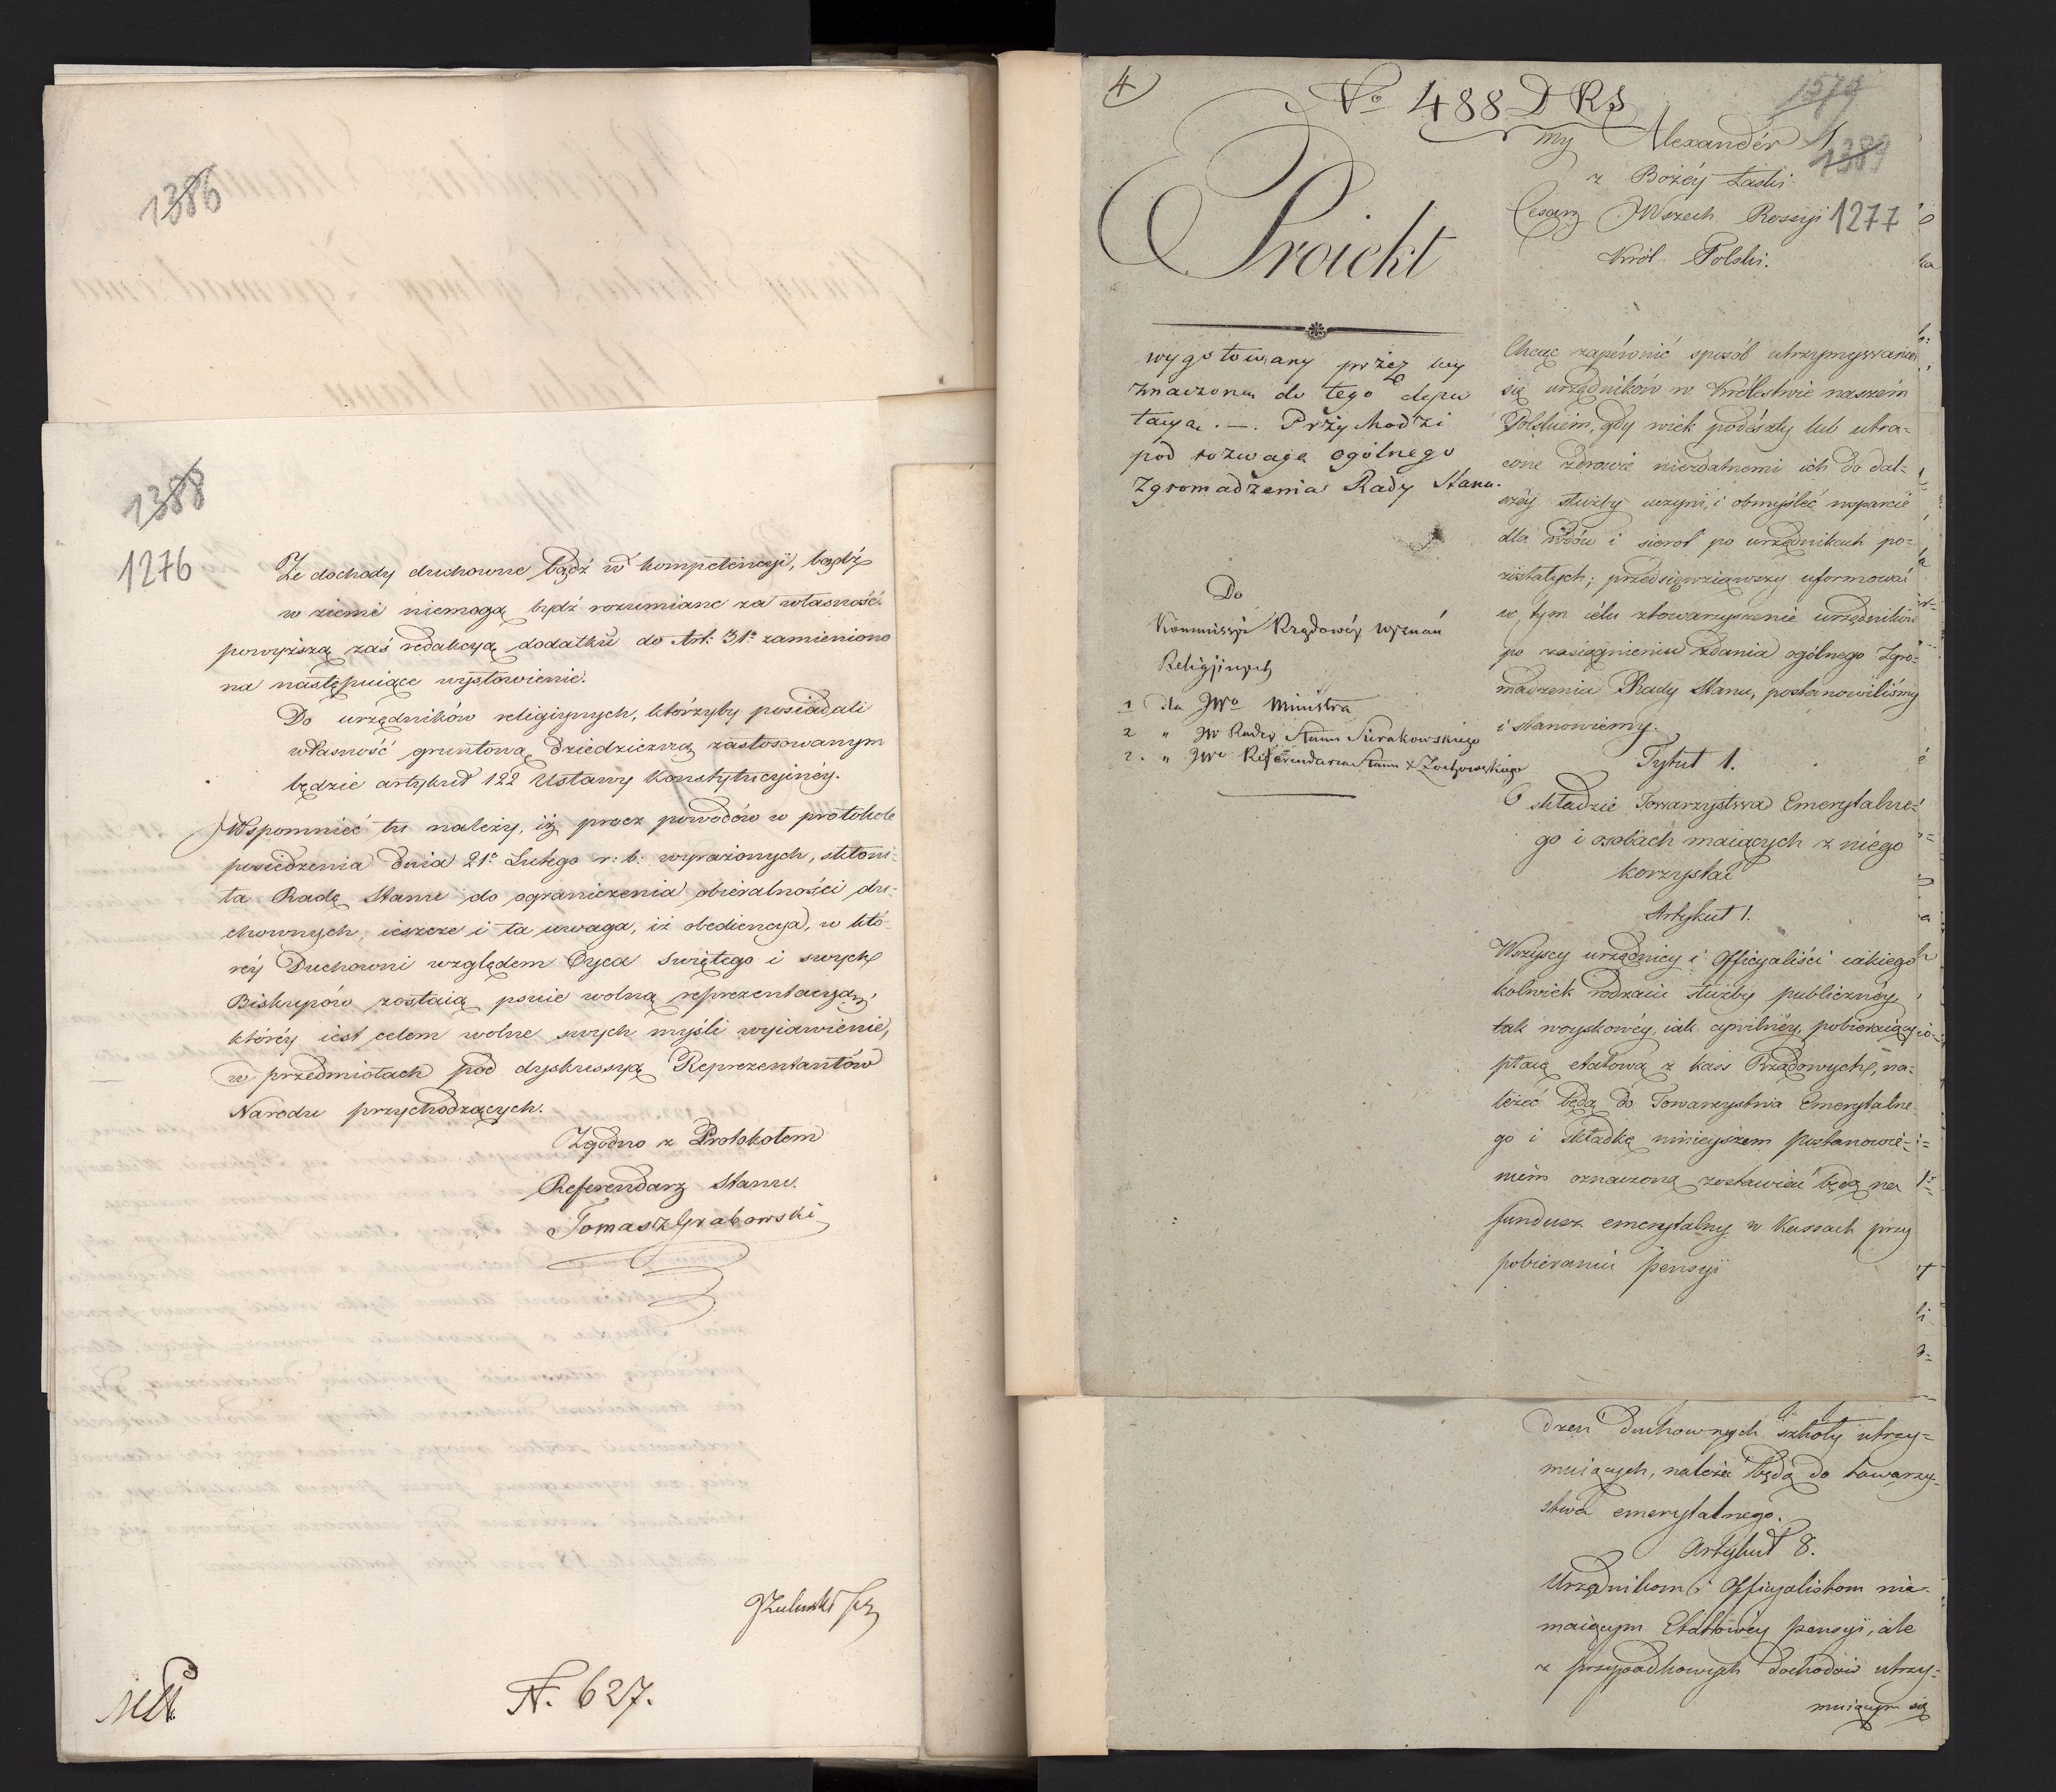 1386
1388
1276
Że dochody duchowne bądź w kompetencyi, bądź
w ziemi niemogą bydź rozumiane za własność.
powyższą zaś redakcyą dodatku do Art: 31º zamieniono
na następuiące wysłowienie.
Do urzędników religiynych, którzyby posiadali
własność gruntową dziedziczną zastosowanym
będzie artykuł 122 Ustawy Konstytucyinéy.
Wspomnieć tu należy, iż procz powodów w protokole
posiedzenia dnia 21º Lutego r: b: wyrażonych, skłoni-
ła Radę Stanu do ograniczenia obieralności du-
chownych, ieszcze i ta uwaga, iż obediencya, w któ-
réy Duchowni względem Oyca Swiętego i swych
Biskupów zostaią psuie wolną reprezentacyą,
któréy iest celem wolne swych myśli wyiawienie,
w przedmiotach pod dyskussyą Reprezentantów
Narodu przychodzących.
Zgodno z Protokołem
Referendarz Stanu.
Tomasz Grabowski
N. 627.
4
Nº 488 D R S
1579
1389
1277
Proiekt
wygotowany przez wy
znaczoną do tego depu
tacyą. —. Przychodzi
pod rozwagę ogólnego
Zgromadzenia Rady Stanu.
Do
Kommissyi Rządowéy wyznań
Religijnych
1 dla JWº Ministra
2 " JW Radcy Stanu Surakowskiego
2. " JWº Referendarza Stanu X Zochowskiego
My Alexander 1
z Bożéy Łaski
Cesarz Wszech Rossyi
Król Polski.
Chcąc zapewnić sposób utrzymywania
się urzędników w Królestwie naszém
Polskiém, gdy wiek podeszły lub utra-
cone zdrowie niezdatnemi ich do dal-
széy służby uczyni, i obmyśleć wsparcie
dla wdów i sierot po urzędnikach po-
zostałych; przedsięwziąwszy uformować
w tym célu stowarzyszenie urzędników
po zasiągnieniu zdania ogólnego Zgro-
madzenia Rady Stanu, postanowiliśmy
i stanowiemy.
Tytuł 1.
O składzie Towarzystwa Emerytalne-
go i osobach maiących z niégo
korzystać
Artykuł 1.
Wszyscy urzędnicy i Officyaliści iakiego
kolwiek rodzaiu służby publicznéy
tak woyskowéy, iak cywilnéy, pobieraiący
płacę etatową z kass Rządowych, na-
leżéć będą do Towarzystwa Emerytalne
go i składkę ninieyszem postanowie-
niém oznaczoną zostawiać będą na
fundusz emerytalny w Kassach przy
pobieraniu pensyi
dzeń duchownych szkoły utrzy-
muiących, należéć będą do towarzy-
stwa emerytalnego.
Artykuł 8.
Urzędnikom i Officyalistom nie-
maiącym Etatowéy pensyi, ale
z przypadkowych dochodów utrzy-
muiącym się